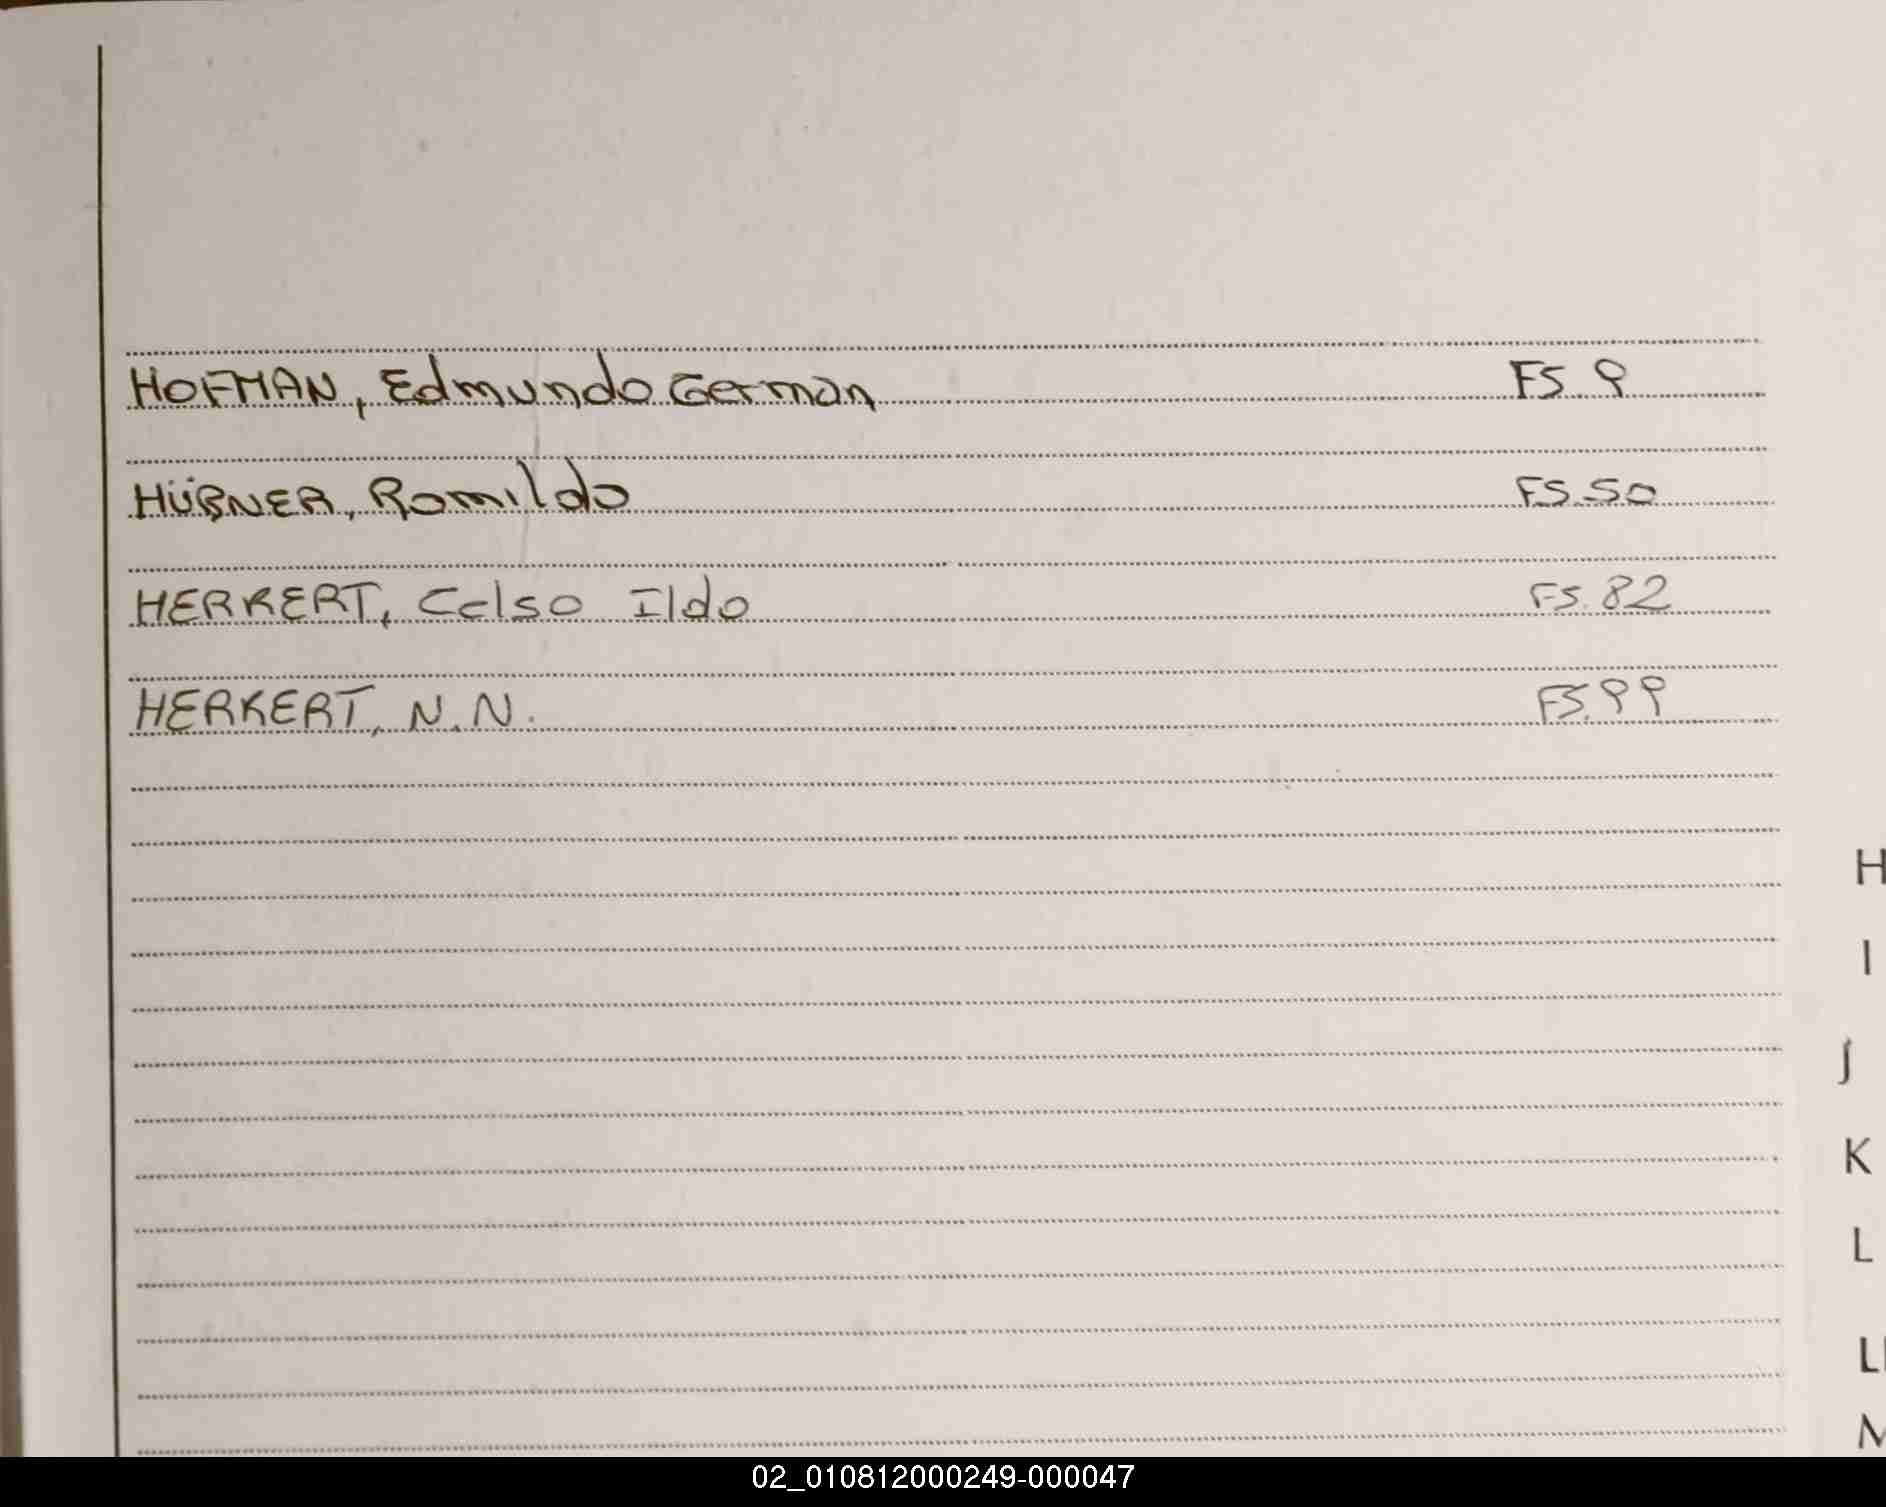 HOFMAN, Edmundo German FS. 9
HÜBNER, Romildo FS. 50
HERKERT, Celso Ildo FS. 82
HERKERT, N.N. FS. 99
H
I
J
K
L
Ll
M
02_010812000249-000047